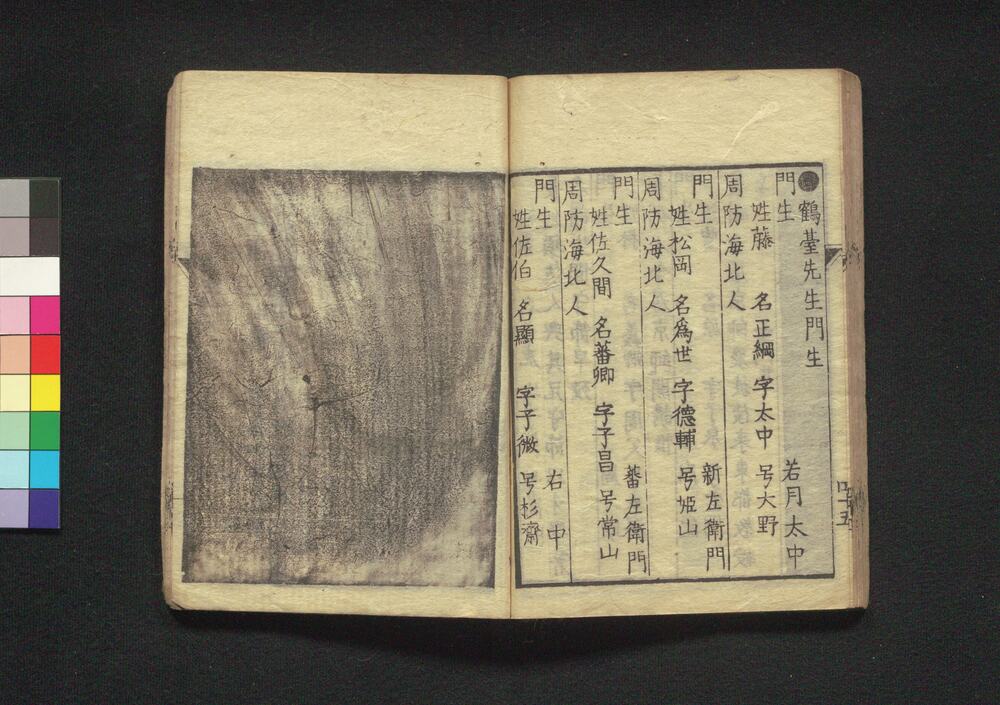 ●鶴臺先生門生
門生 若月太中
姓藤 名正綱 字太中 号大野
周防海北人
門生 新左衛門
姓松岡 名爲世 字德輔 号姫山
周防海北人
門生 蕃左衛門
姓佐久間 名蕃卿 字子昌 号常山
周防海北人
門生 右中
姓佐伯 名顯 字子微 号杉齋